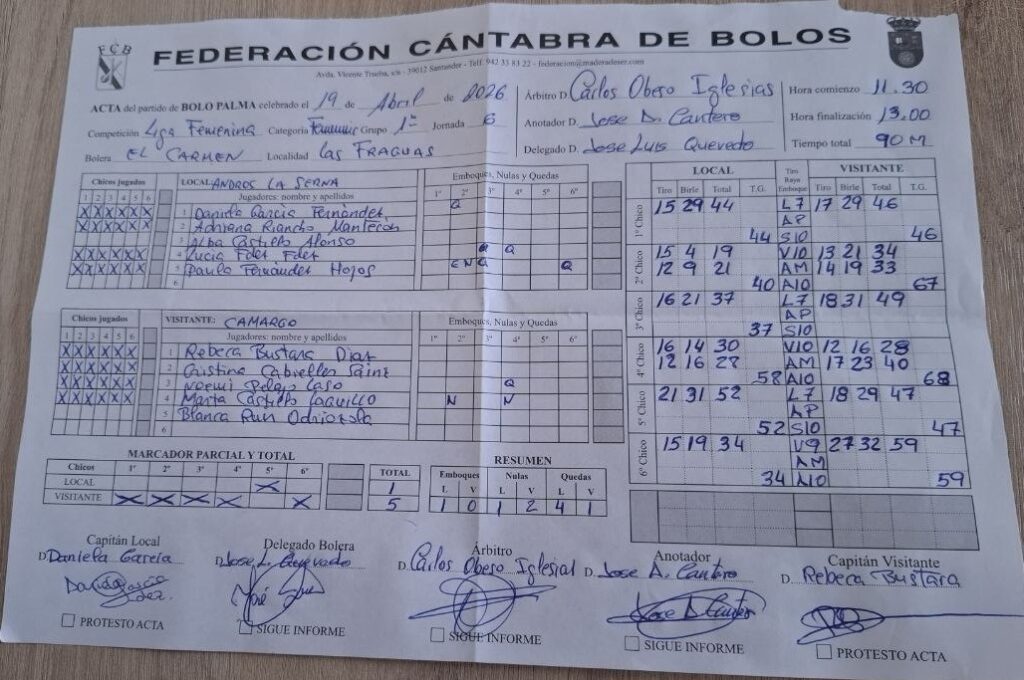 FCB
FEDERACIÓN CÁNTABRA DE BOLOS
Avda. Vicente Trueba, s/n - 39012 Santander - Telf: 942 33 83 22 - federacion@maderadeser.com
ACTA del partido de BOLO PALMA celebrado el 19 de Abril de 2026
Competición Liga Femenina Categoría Grupo 1ª Jornada 6
Bolera EL CARMEN Localidad Las FRAGUAS
Árbitro D. Carlos Obeso Iglesias
Anotador D. Jose A. Cantero
Delegado D. Jose Luis Quevedo
Hora comienzo 11.30
Hora finalización 13.00
Tiempo total 90 M
Chicos jugados LOCAL: ANDROS LA SERNA Emboques, Nulas y Quedas
1 2 3 4 5 6 Jugadores: nombre y apellidos 1º 2º 3º 4º 5º 6º
X X X X X X 1 Daniela García Fernández Q
X X X X X X 2 Adriana Riancho Mantecón
3 Alba Castillo Alonso
X X X X X X 4 Lucia Fdez Fdez Q Q
X X X X X X 5 Paula Fernández Hojos E N Q Q
6
Chicos jugados VISITANTE: CAMARGO Emboques, Nulas y Quedas
1 2 3 4 5 6 Jugadores: nombre y apellidos 1º 2º 3º 4º 5º 6º
X X X X X X 1 Rebeca Bustara Diaz
X X X X X X 2 Cristina Cabrelles Sainz
X X X X X X 3 Noemi Pelayo Caso Q
X X X X X X 4 Marta Castillo N N
5 Blanca Run Odriozola
6
LOCAL Tiro Raya Emboque VISITANTE
Tiro Birle Total T.G. Tiro Birle Total T.G.
1º Chico 15 29 44 L7 17 29 46
AP
44 S10 46
2º Chico 15 4 19 V10 13 21 34
12 9 21 AM 14 19 33
40 A10 67
3º Chico 16 21 37 L7 18 31 49
AP
37 S10
4º Chico 16 14 30 V10 12 16 28
12 16 28 AM 17 23 40
58 A10 68
5º Chico 21 31 52 L7 18 29 47
AP
52 S10 47
6º Chico 15 19 34 V9 27 32 59
AM
34 A10 59
MARCADOR PARCIAL Y TOTAL
Chicos 1º 2º 3º 4º 5º 6º TOTAL
LOCAL X 1
VISITANTE X X X X X 5
RESUMEN
Emboques Nulas Quedas
L V L V L V
1 0 1 2 4 1
Capitán Local
D. Daniela García
PROTESTO ACTA
Delegado Bolera
D. Jose L. Quevedo
SIGUE INFORME
Árbitro
D. Carlos Obeso Iglesias
SIGUE INFORME
Anotador
D. Jose A. Cantero
SIGUE INFORME
Capitán Visitante
D. Rebeca Bustara
PROTESTO ACTA